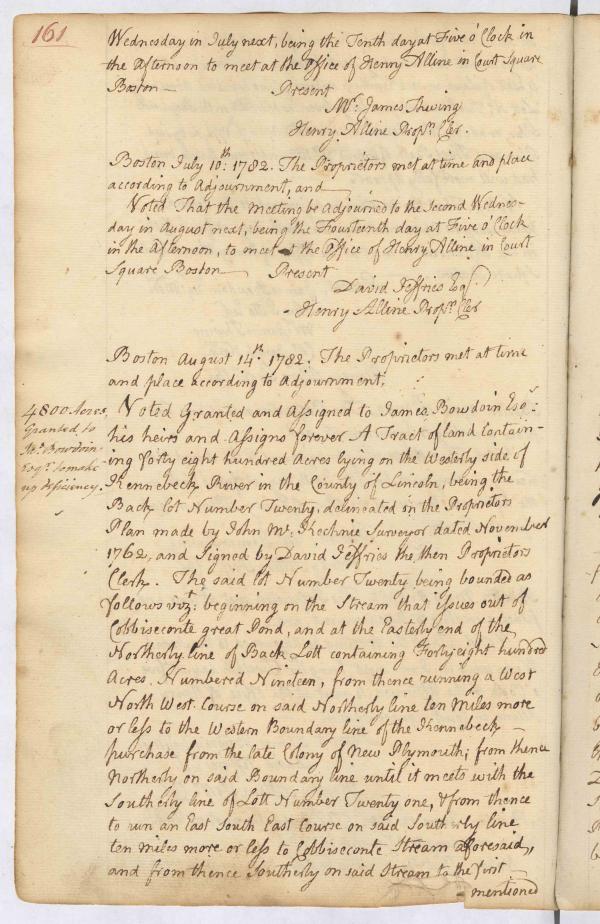 161
Wednesday in July next, being the Tenth day at Five o'Clock in
the Afternoon to meet at the Office of Henry Alline in Court Square
Boston — Present
Mr. James Thwing
Henry Alline Proprs. Cler.
Boston July 10th. 1782. The Proprietors met at time and place
according to Adjournment, and
Voted That the meeting be Adjourned to the Second Wednes-
day in August next, being the Fourteenth day at Five o'Clock
in the Afternoon, to meet at the Office of Henry Alline in Court
Square Boston — Present
David Jeffries Esqr.
Henry Alline Proprs. Cler
Boston August 14th. 1782. The Proprietors met at time
and place according to Adjournment,
4800 Acres
Granted to
Js. Bowdoin
Esqr. to make
up deficiency.
Voted Granted and Assigned to James Bowdoin Esqr:
his heirs and Assigns forever A Tract of land Contain-
ing forty eight hundred Acres lying on the Westerly side of
Kennebeck River in the County of Lincoln, being the
Back lot Number Twenty, delineated in the Proprietors
Plan made by John Mc. Kechnie Surveyor dated November
1762, and Signed by David Jeffries the then Proprietors
Clerk. The said lot Number Twenty being bounded as
follows vizt: beginning on the Stream that issues out of
Cobbiseconte great Pond, and at the Easterly end of the
Northerly line of Back Lott containing Forty eight hundred
Acres Numbered Nineteen, from thence running a West
North West Course on said Northerly line ten miles more
or less to the Western Boundary line of the Kennebeck
purchase from the late Colony of New Plymouth; from thence
Northerly on said Boundary line until it meets with the
Southerly line of Lott Number Twenty one, & from thence
to run an East South East Course on said Southerly line
ten miles more or less to Cobbiseconte Stream aforesaid,
and from thence Southerly on said Stream to the first
mentioned